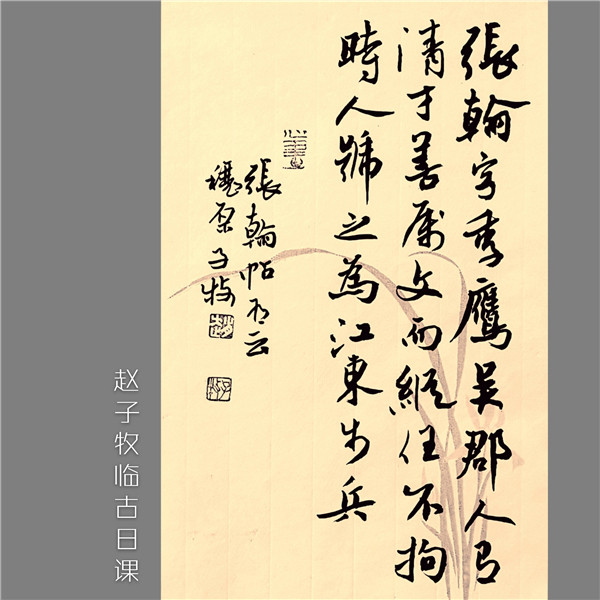 張翰字季鷹吳郡人有
清才善屬文而縱任不拘
時人號之為江東步兵
心畫
張翰帖云
子牧
赵子牧临古日课